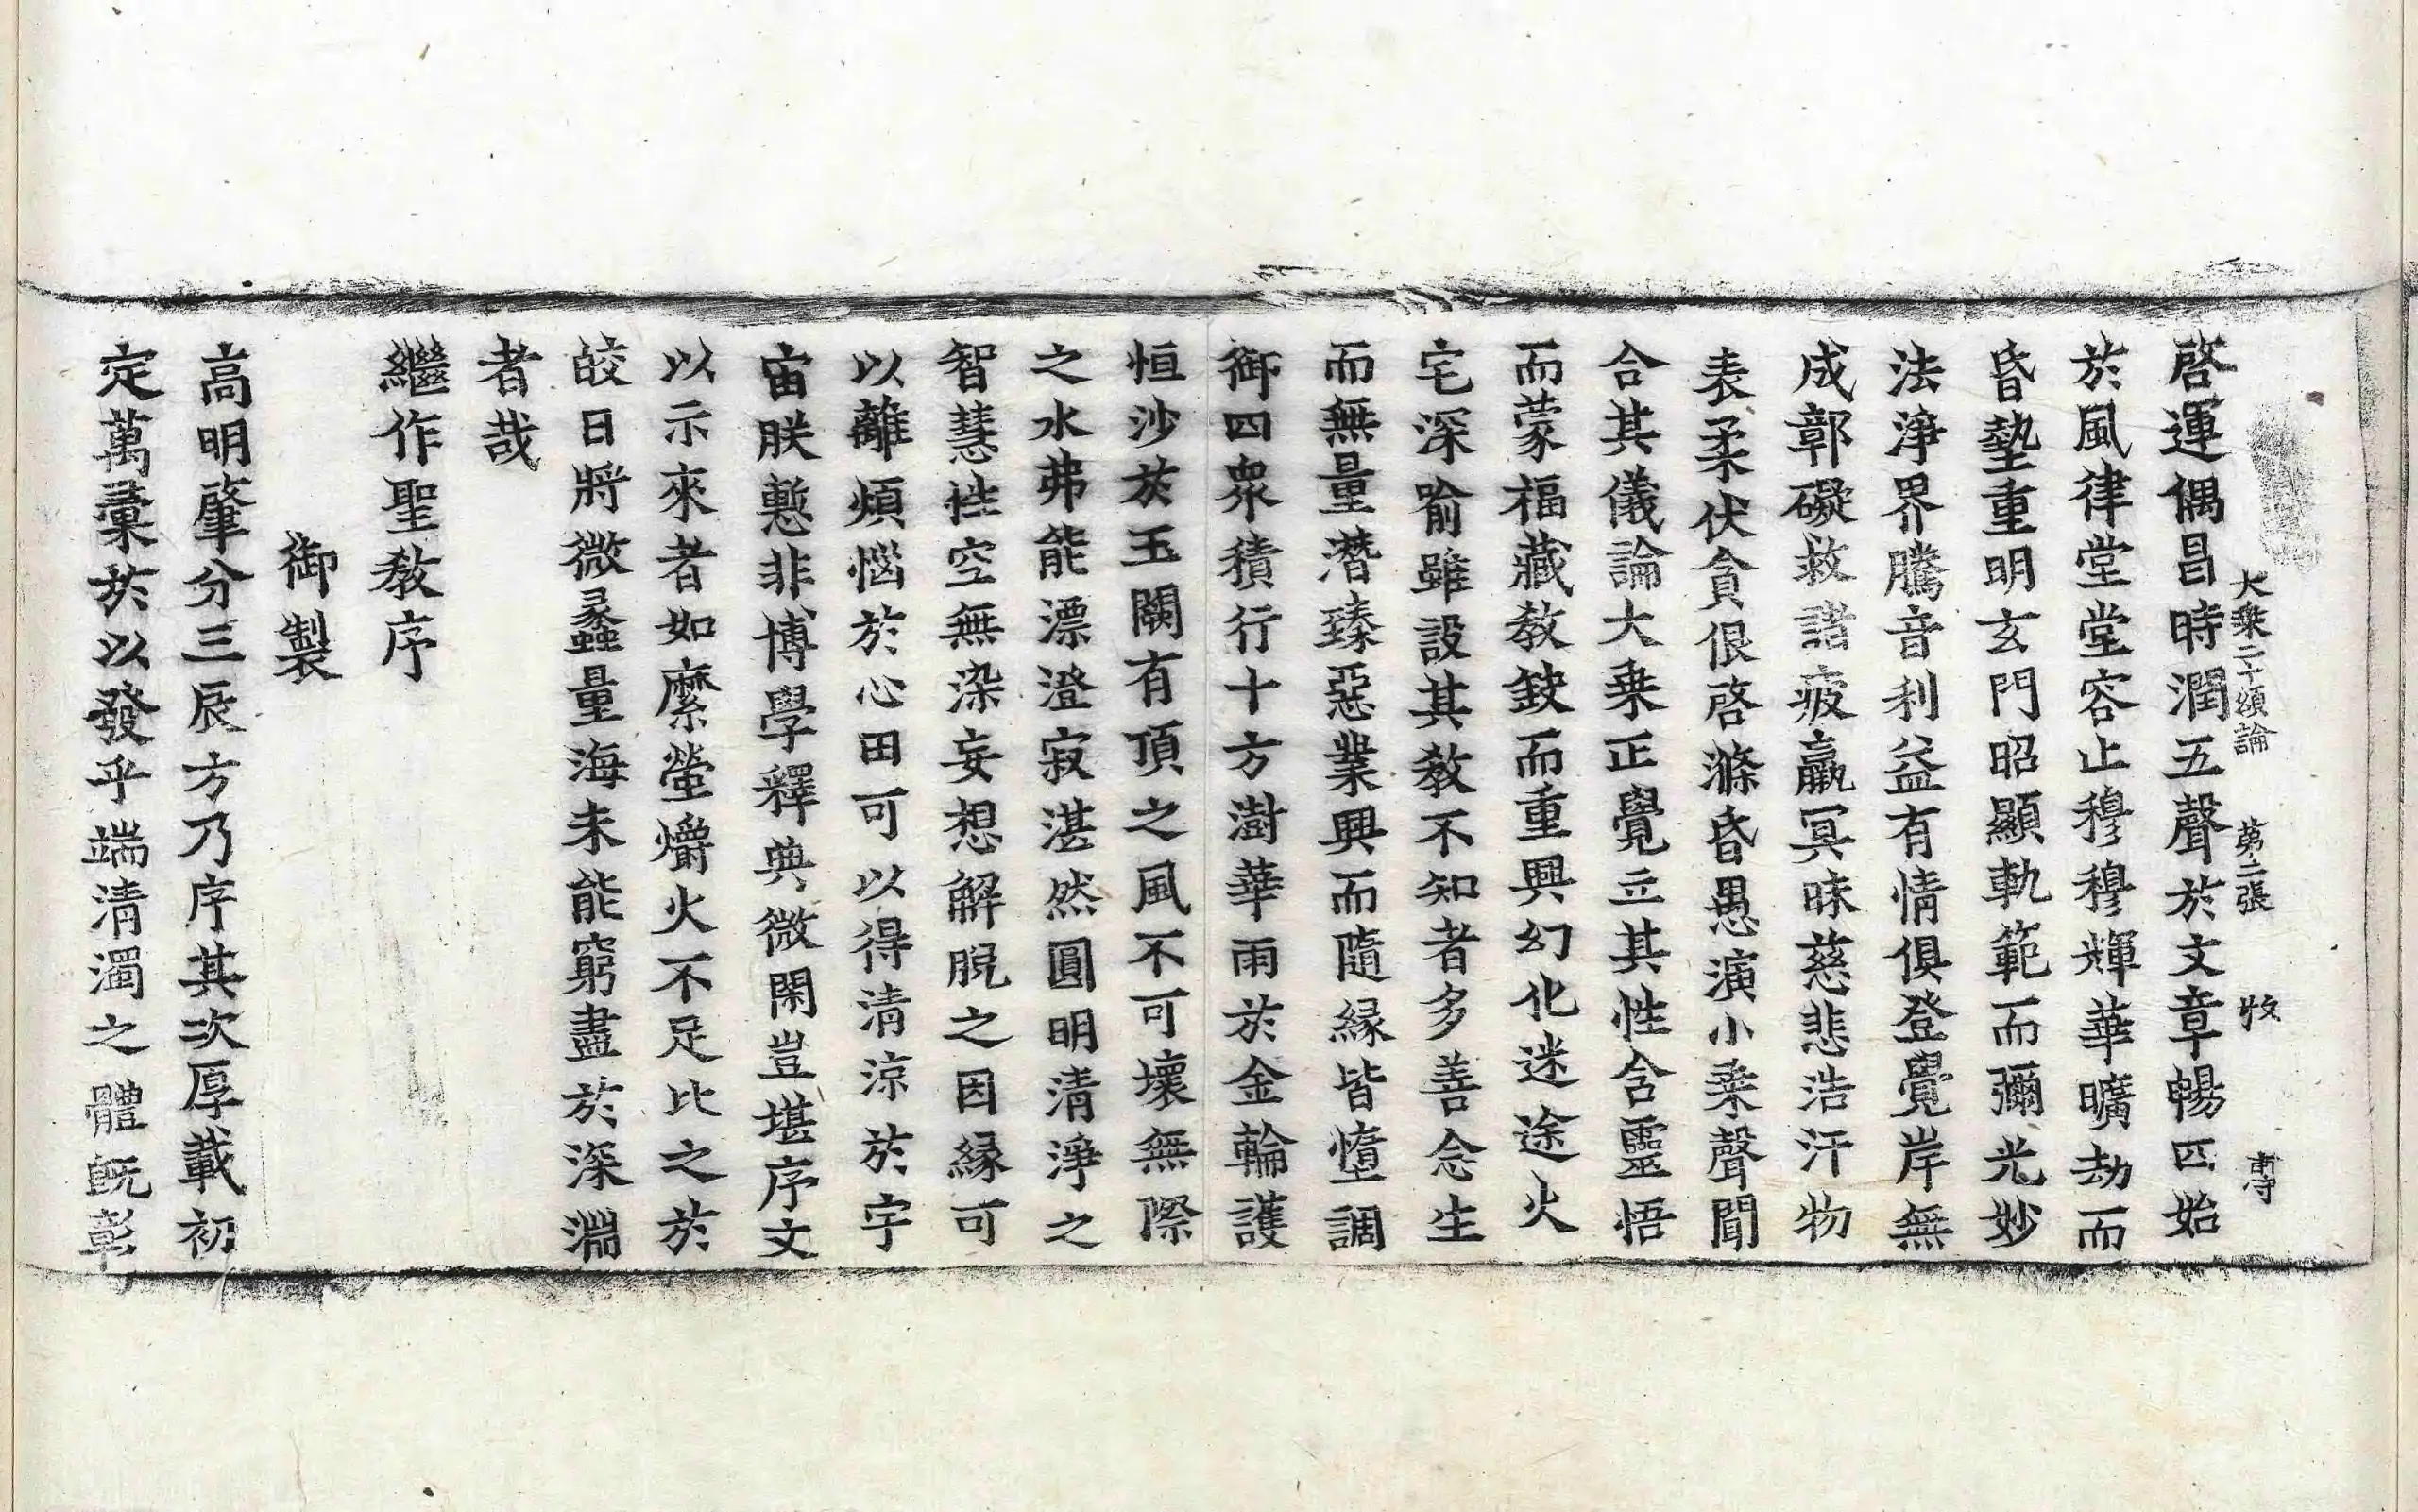 大乗二十頌論 第二張 牧 専
啓運偶昌時潤五聲於文章暢四始
於風律堂堂容止穆穆輝華曠劫而
昏墊重明玄門昭顯軌範而彌光妙
法淨界騰音利益有情俱登覺岸無
成鄣礙救諸疲羸冥昧慈悲浩汗物
表柔伏貪佷啓滌昏愚演小乗聲聞
合其儀論大乗正覺立其性含靈悟
而蒙福藏教鈌而重興幻化迷途火
宅深喻雖設其教不知者多善念生
而無量潛臻惡業興而隨緣皆墮調
御四衆積行十方澍華雨於金輪護
恒沙於玉闕有頂之風不可壞無際
之水弗能漂澄寂湛然圓明清淨之
智慧性空無染妄想解脫之因緣可
以離煩惱於心田可以得清涼於宇
宙朕慙非博學釋典微閑豈堪序文
以示來者如縻螢爝火不足比之於
皎日將微蠡量海未能窮盡於深淵
者哉
繼作聖教序
御製
高明肇分三辰方乃序其次厚載初
定萬彙於以發乎端清濁之體旣彰